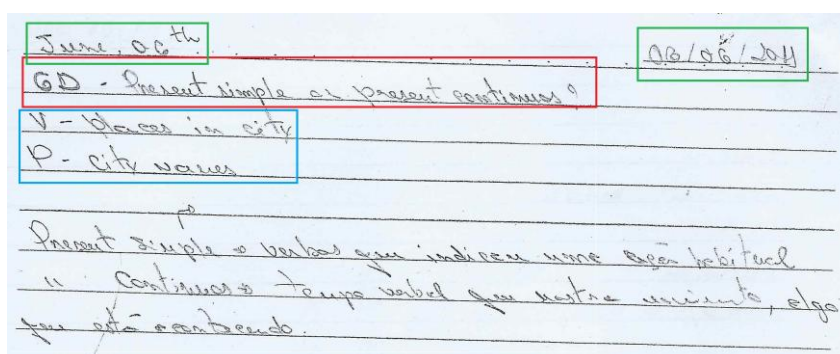 June, 06th 06/06/2011
GD - Present simple or present continuos?
V - Places in city
P - City names
Present simple → verbos que indicam uma ação habitual
" Continuos → tempo verbal que mostra movimento, algo
que está acontecendo.